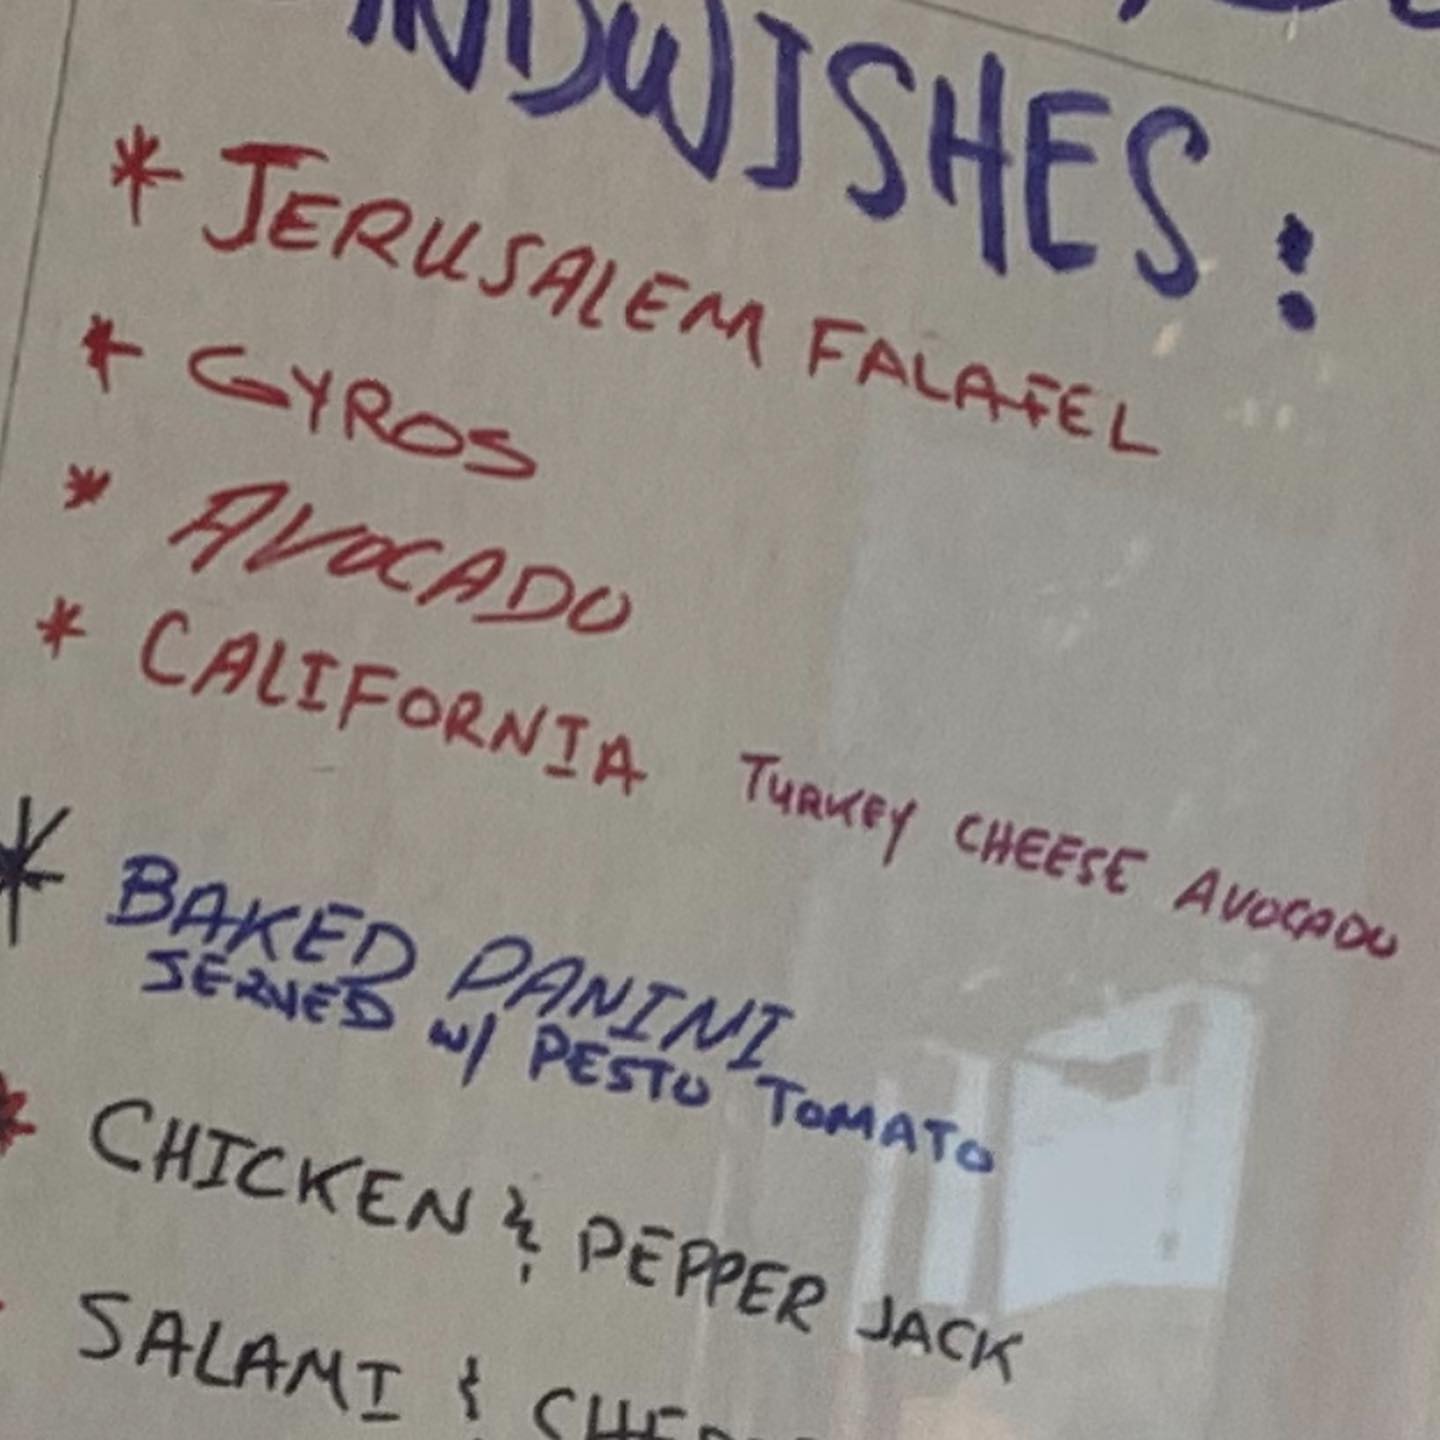 NDWISHES:
* JERUSALEM FALAFEL
* GYROS
* AVOCADO
* CALIFORNIA TURKEY CHEESE AVOCADO
* BAKED PANINI
SERVED w/ PESTO TOMATO
* CHICKEN & PEPPER JACK
SALAMI &